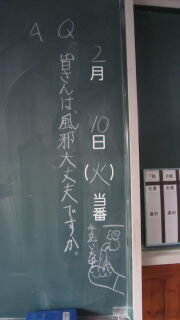 2月10日(火)当番
手洗い大事
Q 皆さんは風邪大丈夫ですか。
A